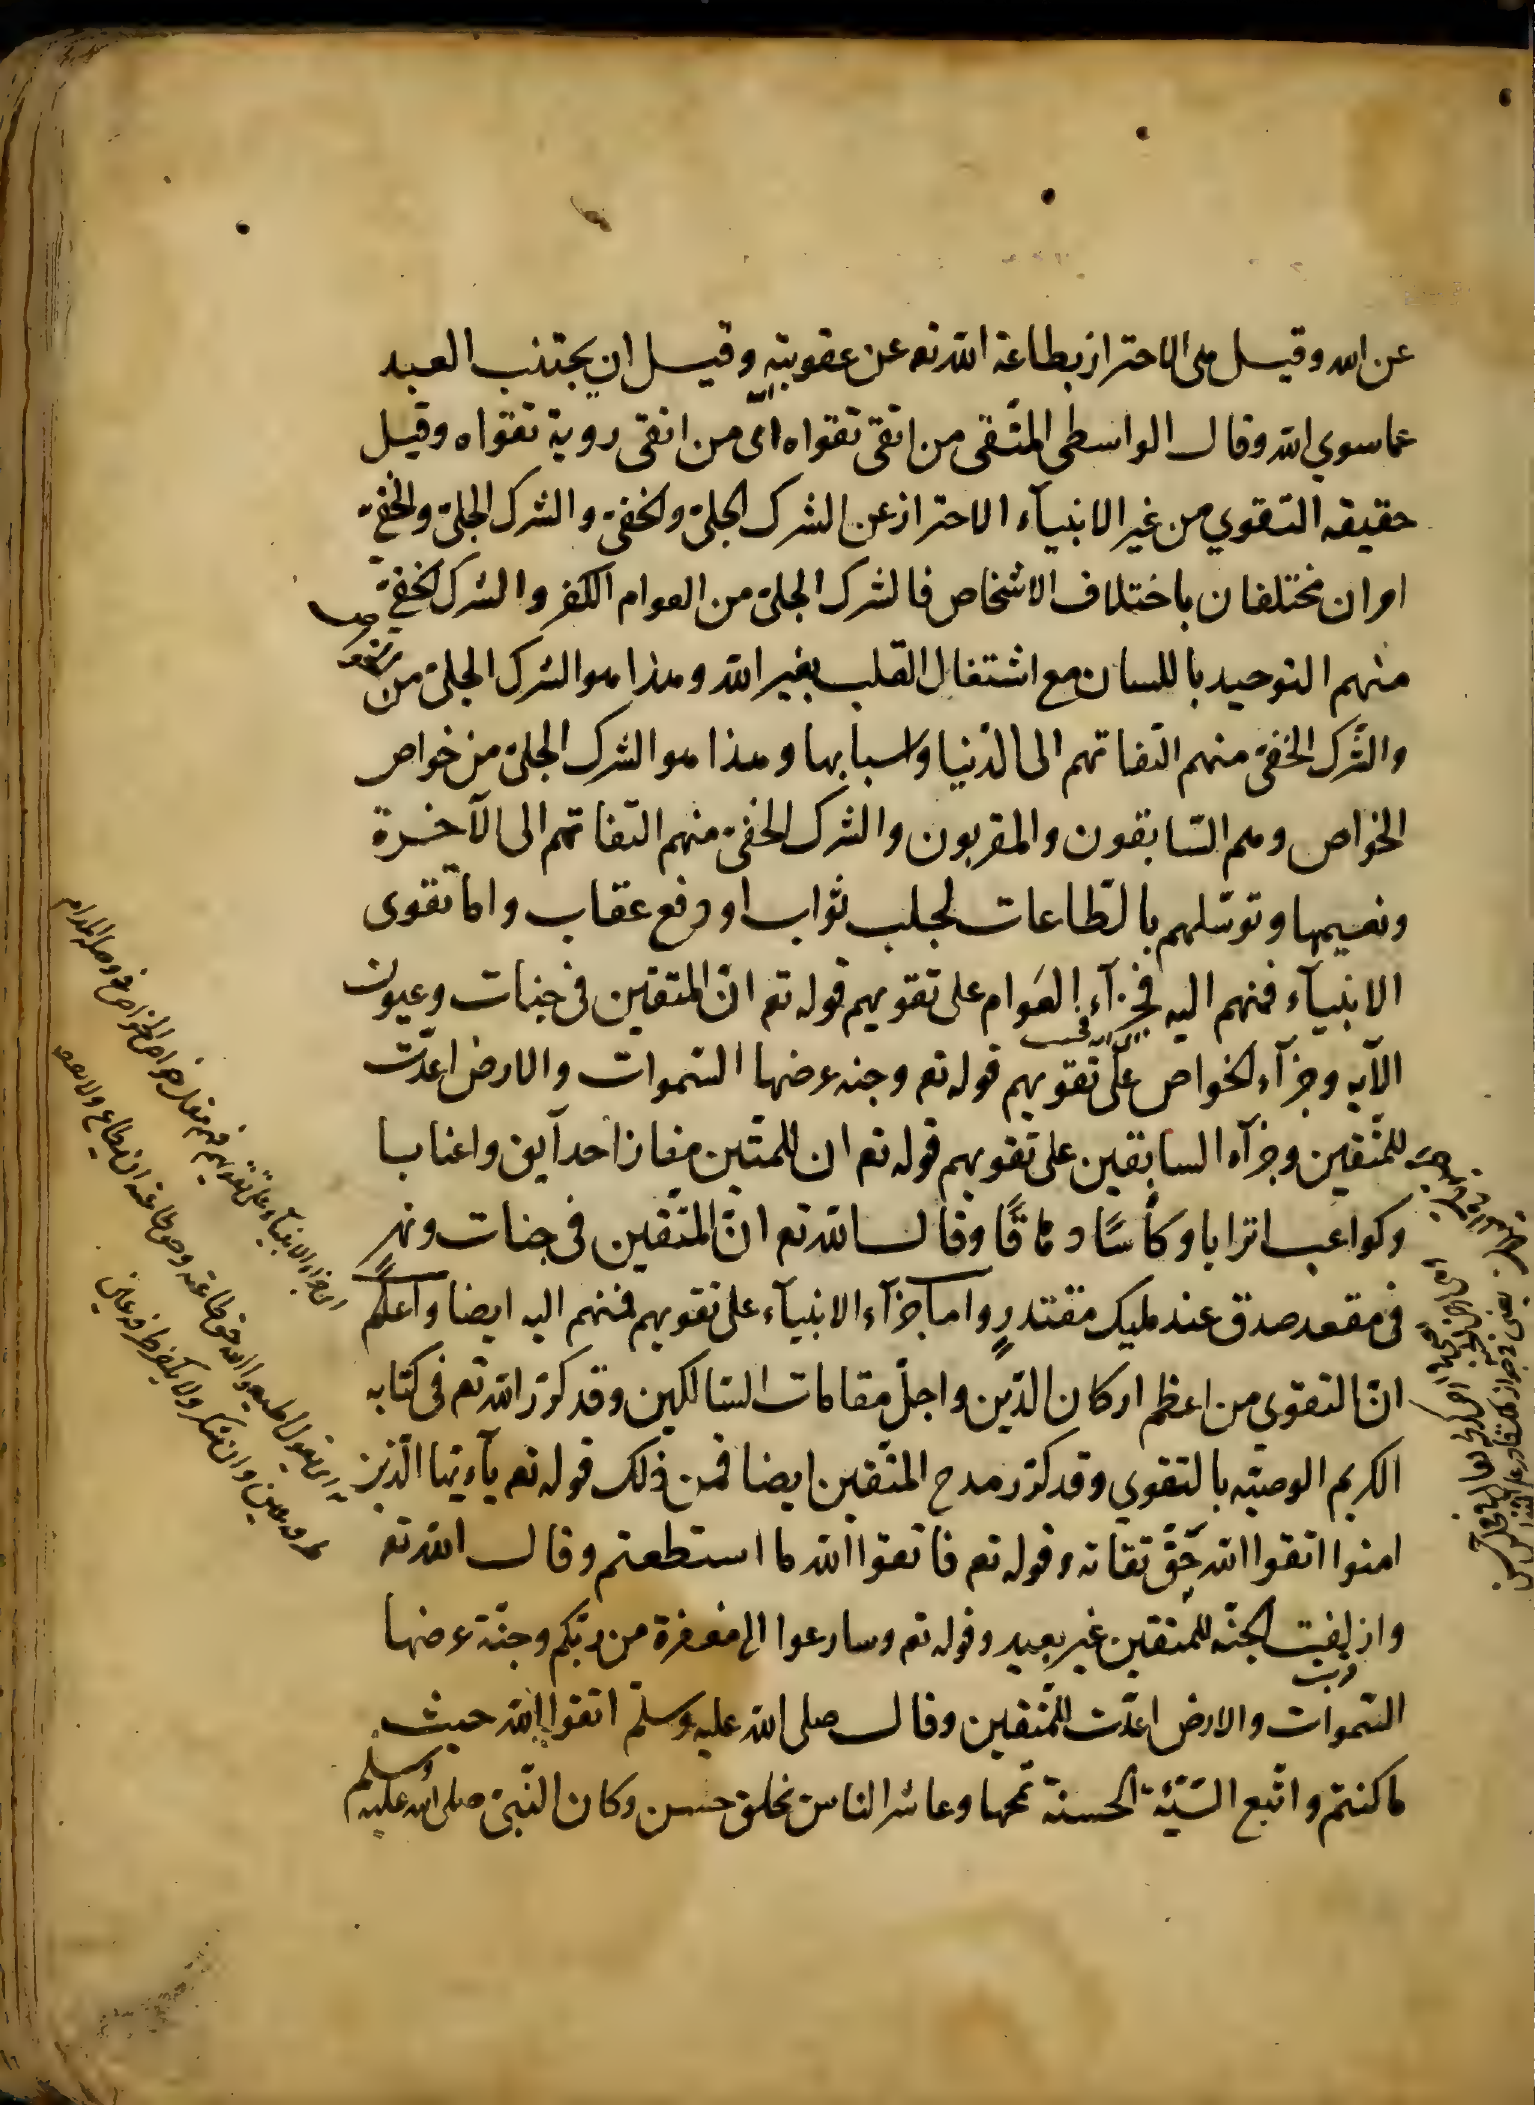 عن الله وقيل هى الاحتراز بطاعة الله تعه عن عقوبته وقيل ان يجتنب العبد
عما سوي الله وقال الواسطى المتّقى من اتقى تقواه اى من اتقى روية تقواه وقيل
حقيقه التقوي من غير الانبيآء الاحتراز عن الشرك الجلىّ والخفىّ والشرك الجلىّ والخفىّ
امران مختلفان باختلاف الاشخاص فالشرك الجلىّ من العوام الكفر والشرك الخفىّ
منهم التوحيد باللسان مع اشتغال القلب بغير الله وهذا هو الشرك الجلىّ من
والشّرك الخفىّ منهم التفاتهم الى الدّنيا واسبابها وهذا هو الشرك الجلىّ من خواص
الخواص وهم السّابقون والمقربون والشرك الخفىّ منهم التفاتهم الى الآخرة
ونعيمها وتوسّلهم بالطّاعات لجلب ثواب او دفع عقاب واما تقوى
الانبيآء فمنهم اليه فجزآء العَوام على تقويهم قوله تع انّ المتقين فى جنات وعيون
الآيه وجزآء الخواص على تقويهم قوله تع وجنه عرضها السّموات والارض اعدّت
للمتّقين وجزآء السابقين على تقويهم قوله تع ان للمتّين مفازا حدآيق واعنابا
وكواعب اترابا وكأسًا دهاقًا وقال الله تع انّ المتّقين فى جنات ونهرٍ
فى مقعد صدق عند مليك مقتدرٍ واما جزآء الانبيآء على تقويهم فمنهم اليه ايضا واعلم
انّ التقوى من اعظم اركان الدّين واجلّ مقامات السّالكين وقد كرّر الله تع فى كتابه
الكريم الوصيّه بالتقوي وقد كرّر مدح المتّقين ايضا فمن ذلك قوله تع يآءيّها الّذين
امنوا اتقوا الله حَقّ تقاته وقوله تع فاتّقوا الله ما استطعتم وقال الله تع
وازلفت الجنّه للمتقين غير بعيد وقوله تع وسارعوا الى مغفرة من ربّكم وجنّة عرضها
قربت
السّموات والارض اعدّت للمّتقين وقال صلى الله عليه وسلّم اتقوا الله حيث
ما كنتم واتبع السّيّئة الحسنة تمحها وعاشر الناس بخلق حسن وكان النّبىّ صلى الله عليه وسلم